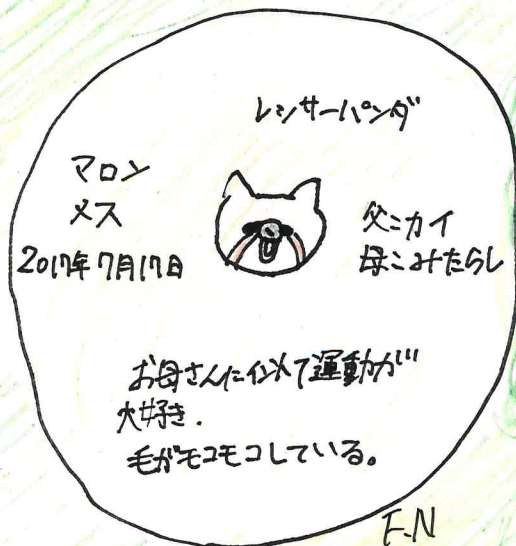 レッサーパンダ
マロン
メス
2017年7月17日
父:カイ
母:みたらし
お母さんに似て運動が
大好き.
毛がモコモコしている。
F.N